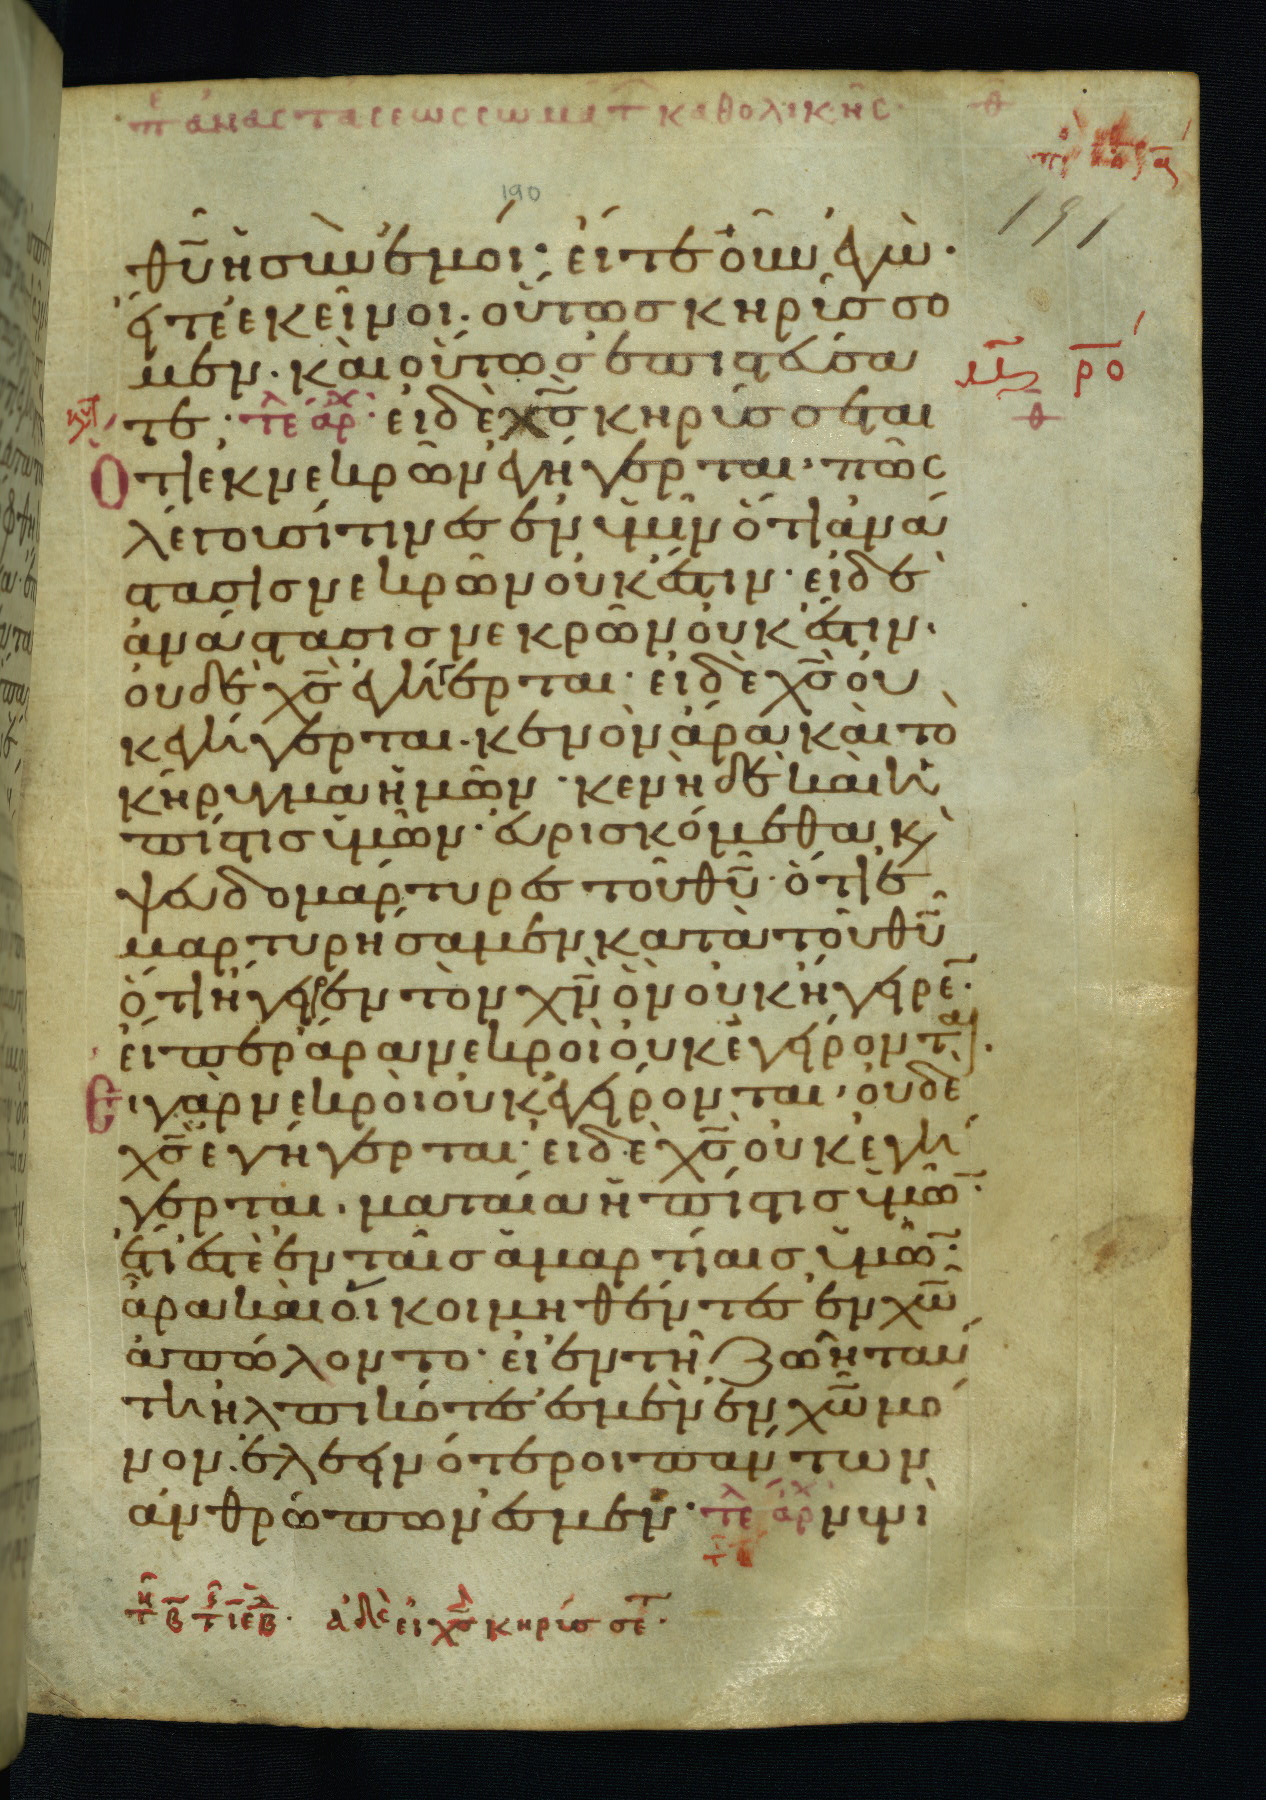 π̅ε ἀναστάσεως σωμάτ κ̅ καθολικῆς· θ̅
190
191
θῦ ἡ σὺν ἐμοί· εἴτε οὖν ἐγὼ·
εἴτε ἐκεῖνοι· οὕτως κηρύσσο
μεν· καὶ οὕτως ἐπιστεύσα
τε· τε αρχ· εἰ δὲ χ̅ς̅ κηρύσσεται
Ὅτι ἐκ νεκρῶν ἐγήγερται· πῶς
λέγουσί τινες ἐν ὑμῖν ὅτι ἀνά
στασις νεκρῶν οὐκ ἔστιν· εἰ δὲ
ἀνάστασις νεκρῶν οὐκ ἔστιν·
οὐδὲ χ̅ς̅ ἐγήγερται· εἰ δὲ χ̅ς̅ οὐ
κ ἐγήγερται· κενὸν ἄρα καὶ τὸ
κήρυγμα ἡμῶν· κενὴ δὲ καὶ ἡ
πίστις ὑμῶν· εὑρισκόμεθα κ̀
ψευδομάρτυρες τοῦ θ̅υ̅· ὅτι ἐ
μαρτυρήσαμεν κατὰ τοῦ θ̅υ̅
ὅτι ἤγειρεν τὸν χ̅ν̅ ὃν οὐκ ἤγειρε̅·
εἴπερ ἄρα νεκροὶ οὐκ ἐγείροντ̅αι·
Εἰ γὰρ νεκροὶ οὐκ ἐγείρονται· οὐδὲ
χ̅ς̅ ἐγήγερται· εἰ δὲ χ̅ς̅ οὐκ ἐγή
γερται· ματαία ἡ πίστις ὑμῶ̅·
ἔτι ἐστὲ ἐν ταῖς ἁμαρτίαις ὑμῶ̅·
ἄρα καὶ οἱ κοιμηθέντες ἐν χ̅ω̅
ἀπώλοντο· εἰ ἐν τῆ ζωῆ ταύ
τη ἠλπικότες ἐσμὲν ἐν χ̅ω̅ μό
νον· ἐλεεινότεροι πάντων
ἀνθρώπων ἐσμέν· τε αρχ νυνὶ
ἀδελ εἰ χ̅ς̅ κηρύσσετ̅·